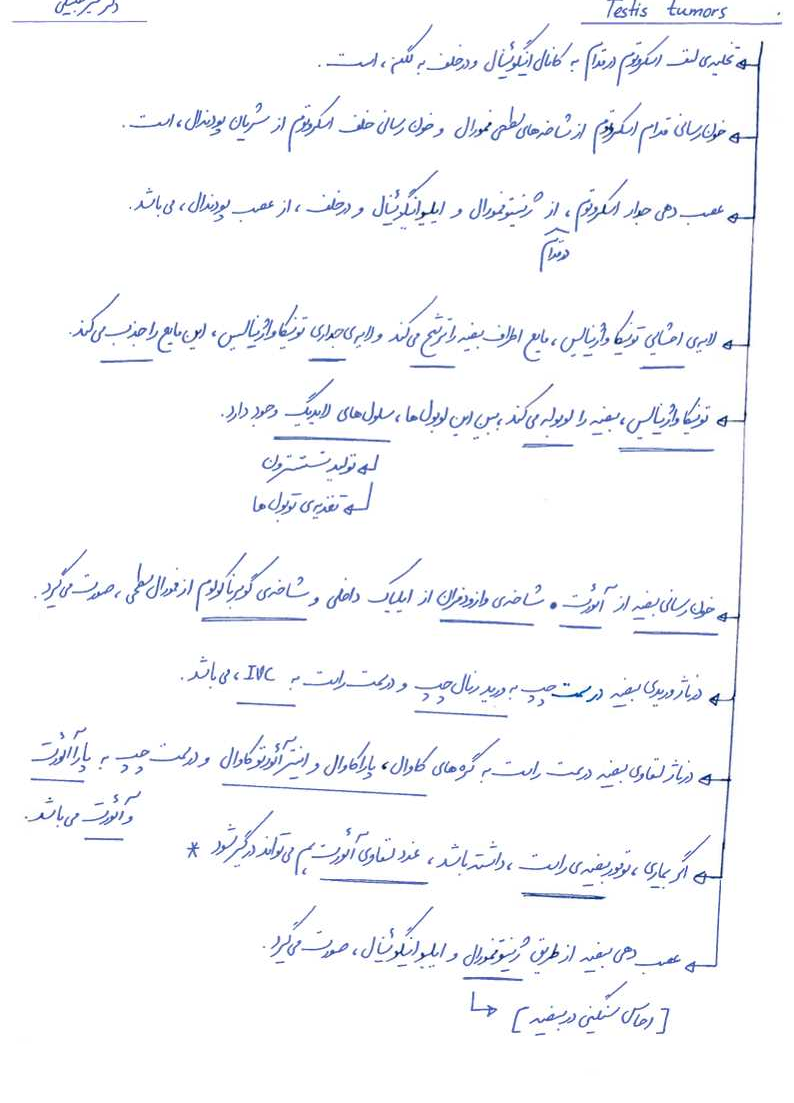 Testis tumors
تخلیه‌ی لنف اسکروتوم در قدام به کانال اینگوئینال و در خلف به لگن، است.
خون رسانی قدام اسکروتوم از شاخه‌های سطحی فمورال و خون رسانی خلف اسکروتوم از شریان پودندال، است.
عصب دهی جدار اسکروتوم، از ژنیتوفمورال و ایلیواینگوئینال و در خلف، از عصب پودندال، می‌باشد.
در قدام
لایه‌ی احشایی تونیکا واژینالیس، مایع اطراف بیضه را ترشح می‌کند و لایه‌ی جداری تونیکا واژینالیس، این مایع را جذب می‌کند.
تونیکا واژینالیس، بیضه را لوبوله می‌کند، بین این لوبول‌ها، سلول‌های لایدیگ وجود دارد.
تولید تستسترون
تغذیه‌ی توبول‌ها
خون رسانی بیضه از آئورت، شاخه‌ی وازودفران از ایلیاک داخلی و شاخه‌ی گوبرناکولوم از فمورال سطحی، صورت می‌گیرد.
درناژ وریدی بیضه در سمت چپ به ورید رنال چپ و در سمت راست به IVC، می‌باشد.
درناژ لنفاوی بیضه در سمت راست به گره‌های کاوال، پاراکاوال و اینترآئورتوکاوال و در سمت چپ به پاراآئورت
و آئورت می‌باشد.
اگر بیماری، تومور بیضه‌ی راست، داشته باشد، غدد لنفاوی آئورت هم می‌تواند درگیر شود *
عصب دهی بیضه از طریق ژنیتوفمورال و ایلیواینگوئینال، صورت می‌گیرد.
[احساس سنگینی در بیضه]